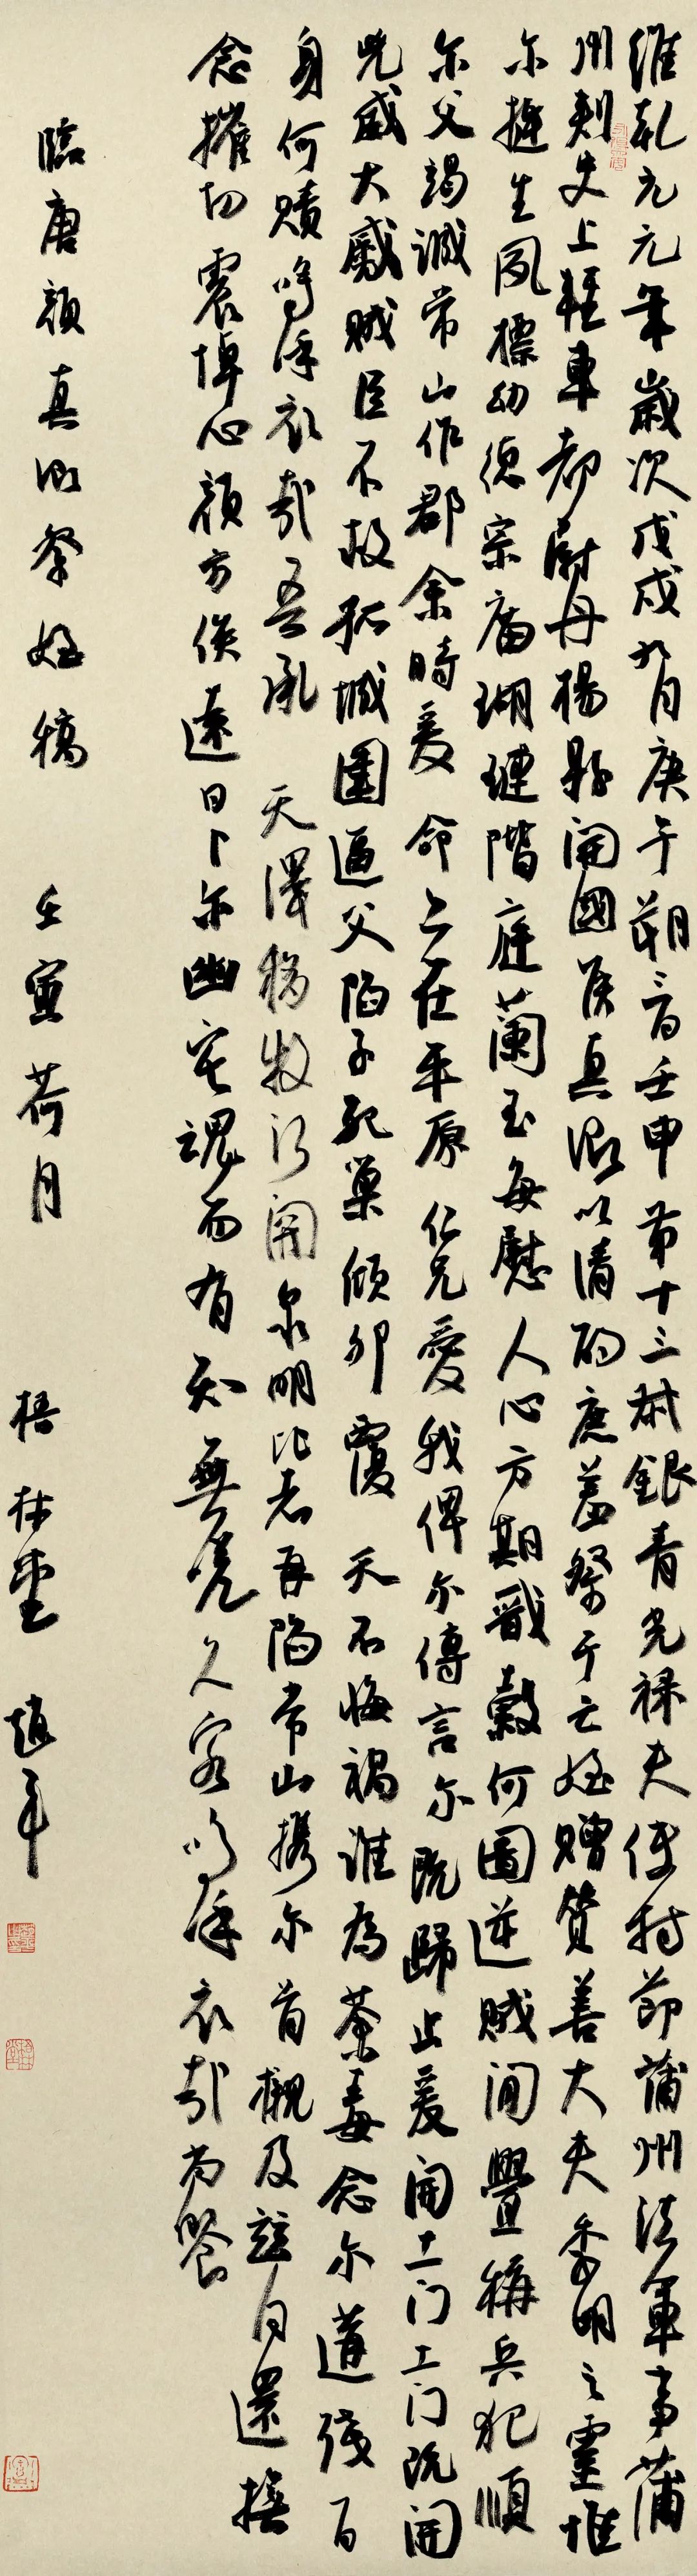 維乾元元年歲次戊戌九月庚午朔三日壬申第十三叔銀青光祿夫使持節蒲州諸軍事蒲
州刺史上輕車都尉丹楊縣開國侯真卿以清酌庶羞祭于亡姪贈贊善大夫季明之靈惟
尔挺生夙標幼德宗廟瑚璉階庭蘭玉每慰人心方期戩穀何圖逆賊閒釁稱兵犯順
尔父竭誠常山作郡余時受命亦在平原仁兄愛我俾尔傳言尔既歸止爰開土门土门既開
兇威大蹙賊臣不救孤城圍逼父陷子死巢傾卵覆天不悔禍誰為荼毒念尔遘殘百
身何贖嗚呼哀哉吾承天澤移牧河關泉明比者再陷常山攜尔首櫬及茲同還撫
念摧切震悼心顏方俟遠日卜尔幽宅魂而有知無嗟久客嗚呼哀哉尚饗
臨唐顏真卿祭姪稿 壬寅荷月 梧林堂 趙年